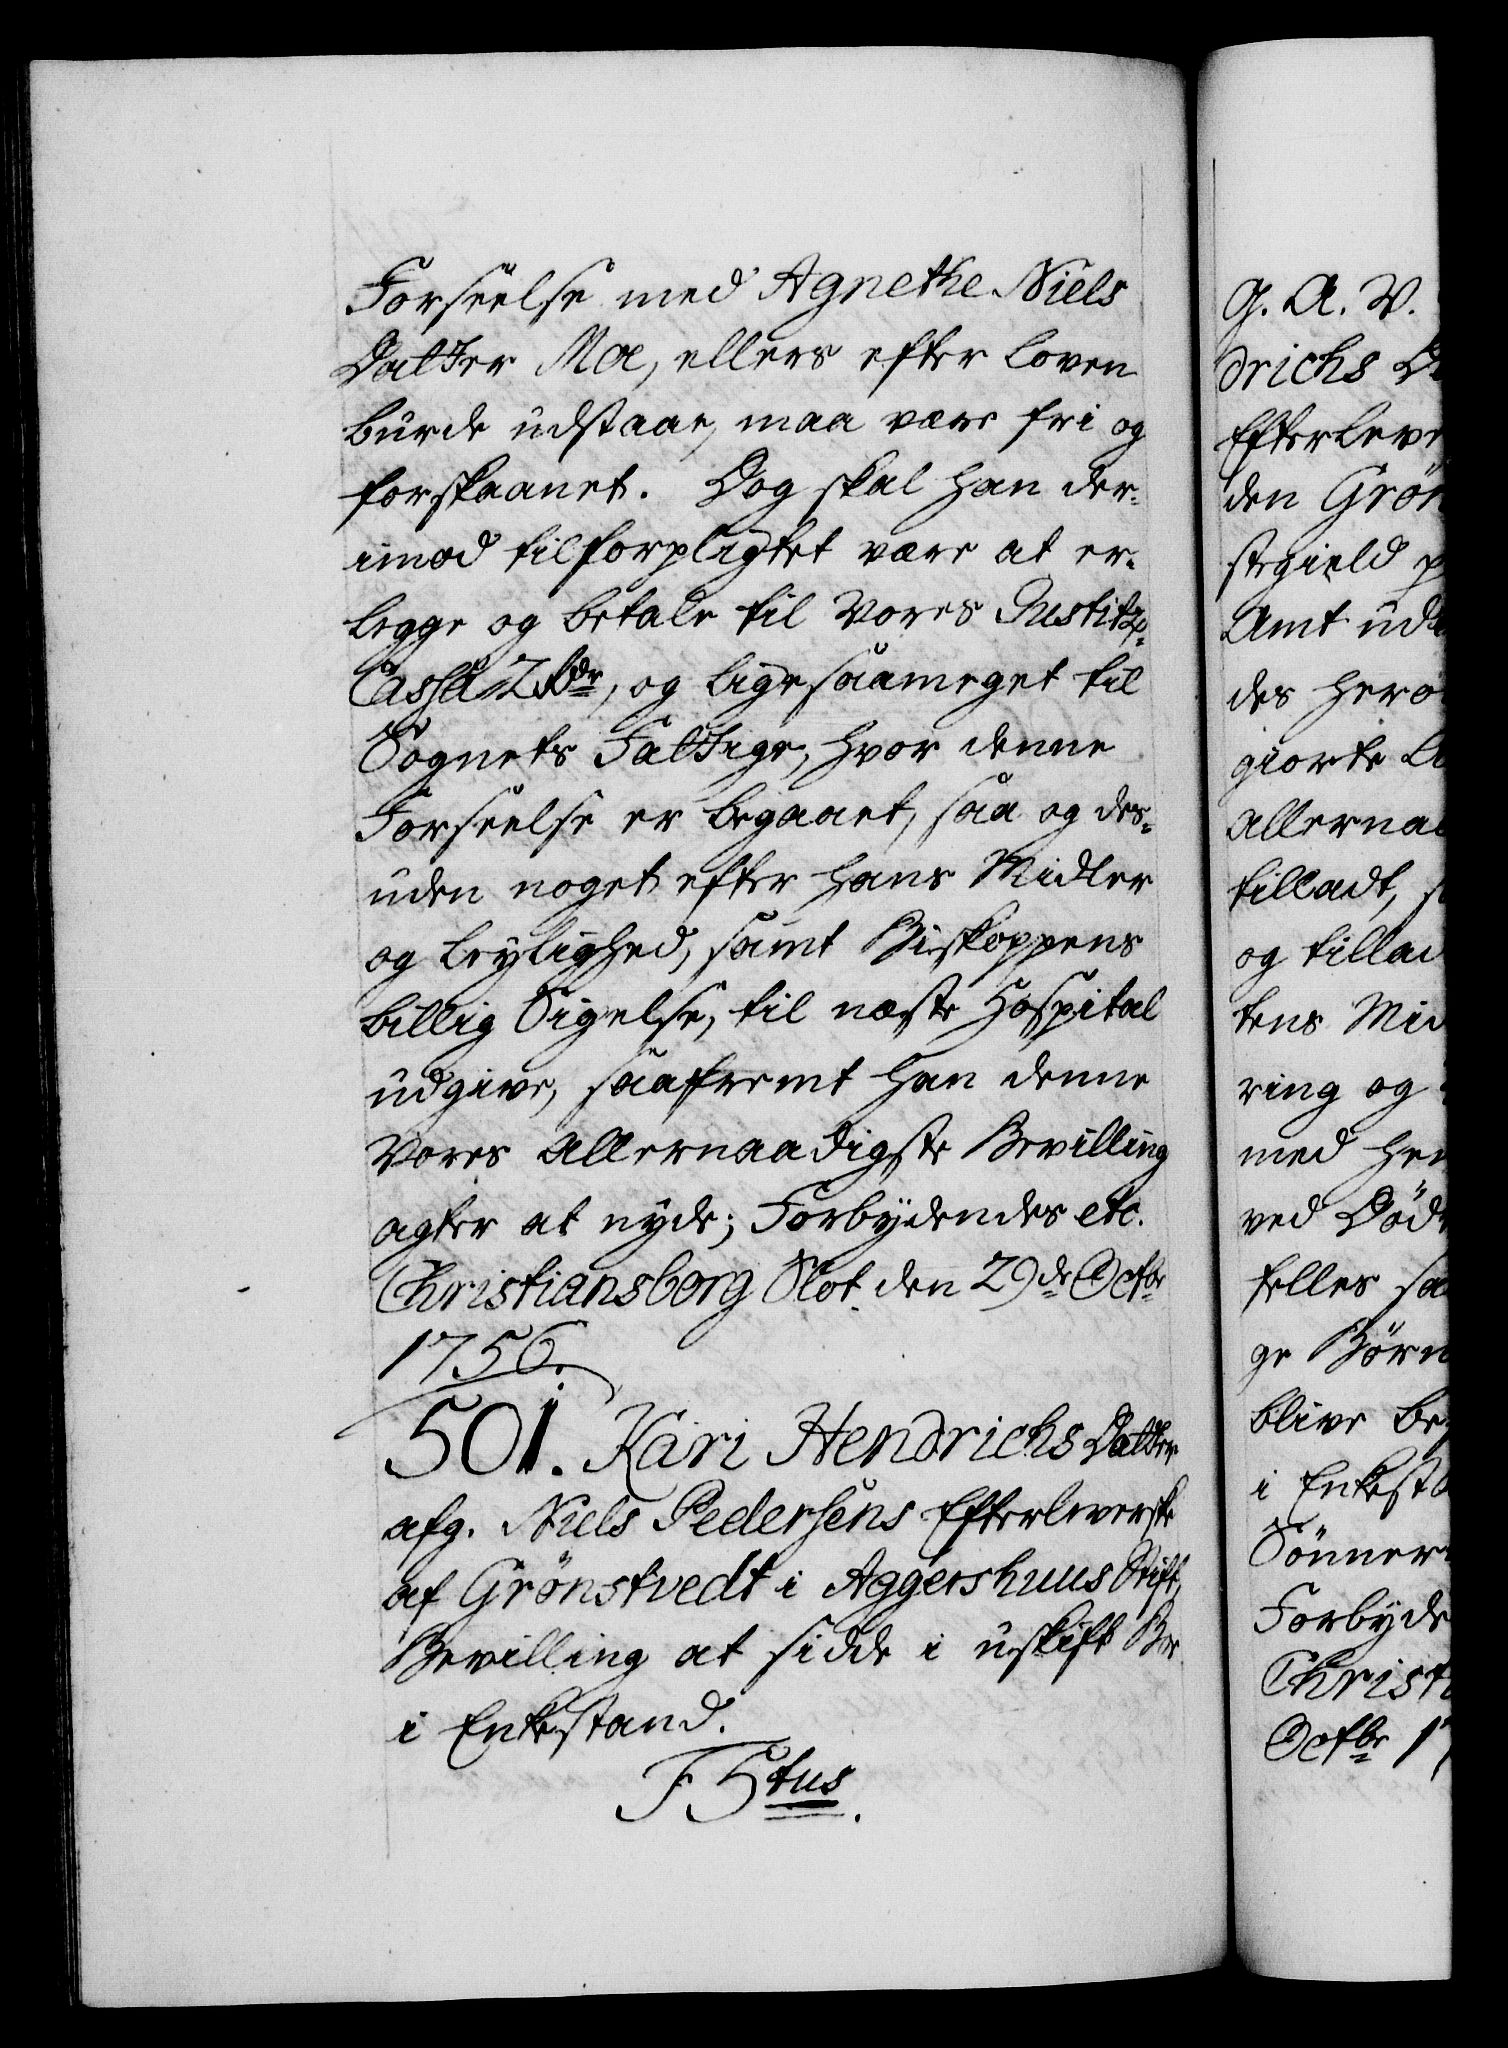 Forseelse med Agnethe Niels
Datter Moe, ellers efter Loven
burde udstaae, maa være fri og
forskaanet. Dog skal han der-
imod tilforpligtet være at er-
legge og betale til Vores Justitz-
Cassa 2 Rdr, og ligesaameget til
Sognets Fattige, hvor denne
Forseelse er begaaet, saa og des-
uden noget efter hans Midler
og Leylighed, samt Biskoppens
billig Sigelse, til næste Hospital
udgive, saafremt han denne
Vores Allernaadigste Bevilling
agter at nyde; Forbydendes etc.
Christiansborg Slot den 29de Octbr
1756.
501. Kari Hendrichs Datter
afg. Niels Pedersens Efterleverske
af Grönstvedt i Aggershuus Stift,
Bevilling at sidde i uskift Boe
i Enkestand.
F 5tus.
G. A. V.
drichs D
Efterleve
den Grön
stgield p
Amt uds
des hero
giorte A
Allernaa
tilladt, s
og tillad
tens Mid
ring og
med hen
ved Döde
felles sa
ge Börn
blive be
i Enkesta
Sönner
Forbyde
Christi
Octbr 17